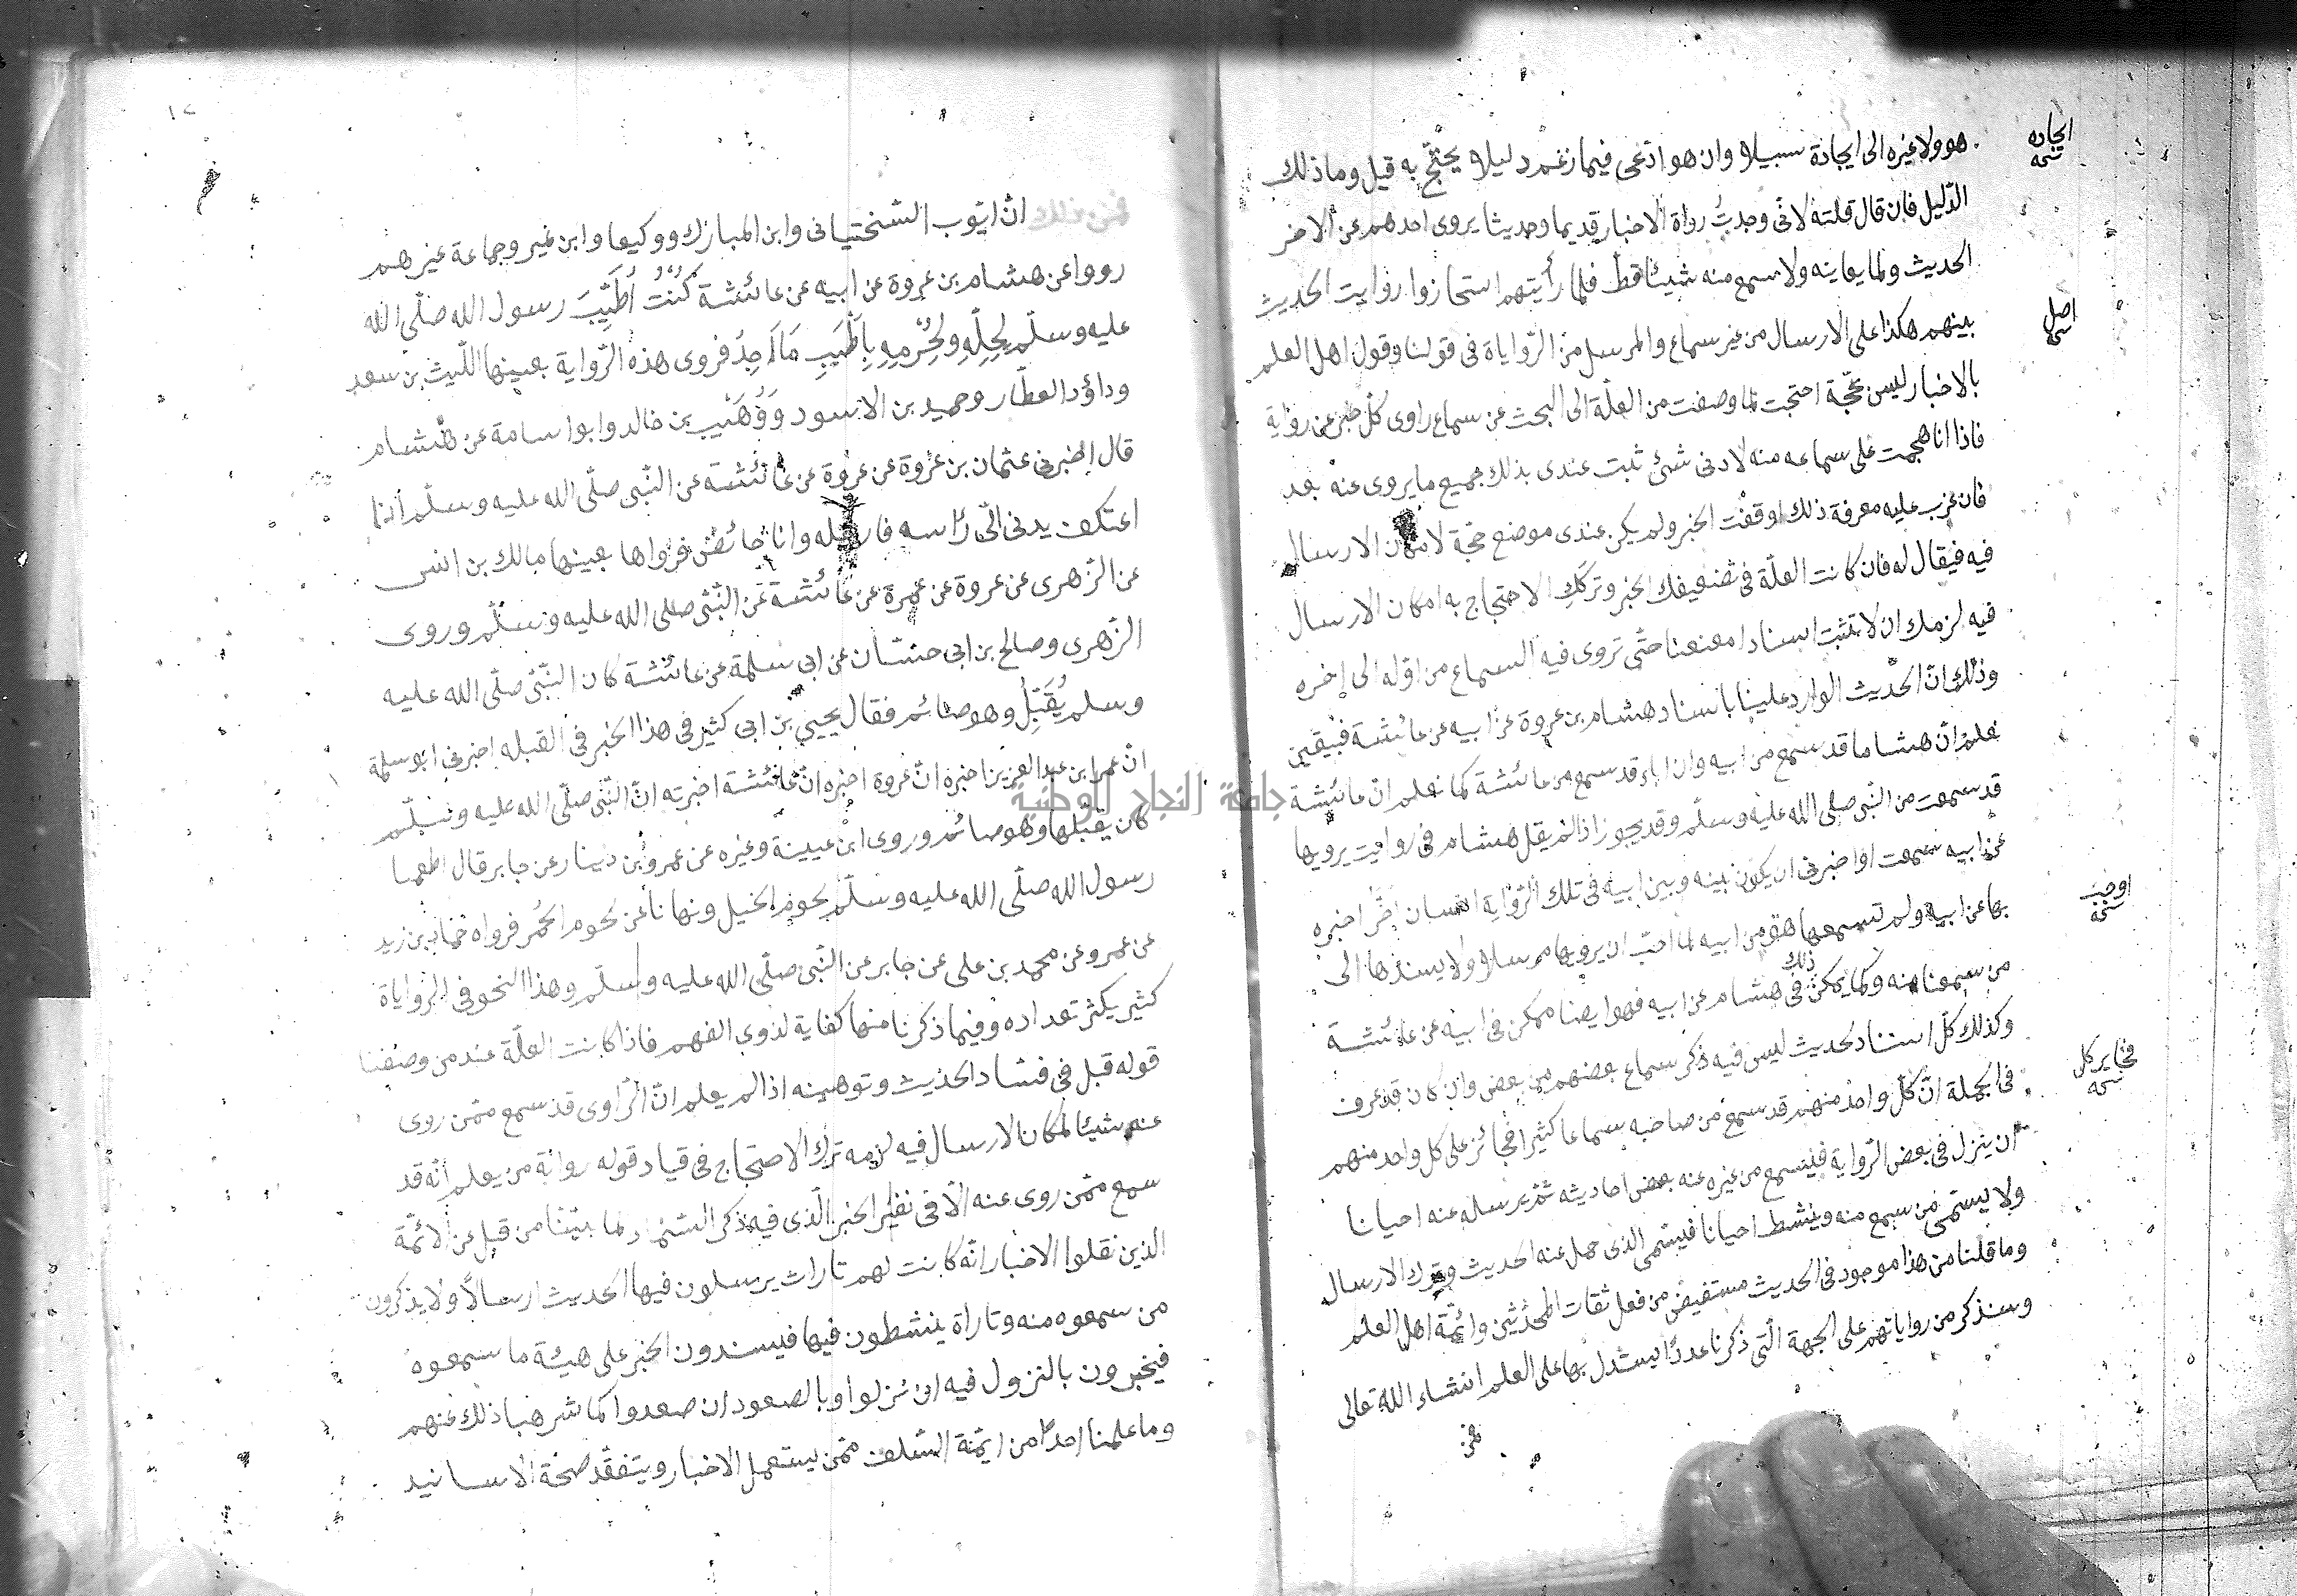 هو ولا غيره الى ايجاده سبيلا وان هو ادعى فيما زعم دليلا يحتج به قيل وما ذلك
الدليل فان قال قلته لانى وجدت رواة الاخبار قديما وحديثا يروى احدهم عن الاخر
الحديث ولما يعاينه ولا سمع منه شيئا قط فلما رأيتهم استجازوا روايت الحديث
بينهم هكذا على الارسال من غير سماع والمرسل من الرواياة فى قولنا وقول اهل العلم
بالاخبار ليس بحجة احتجت لما وصفت من العلة الى البحث عن سماع راوى كل خبر عن رواية
فاذا انا هجمت على سماعه منه لادنى شئ ثبت عندى بذلك جميع ما يروى عنه بعد
فان عزب عليه معرفة ذلك اوقفت الخبر ولم يكن عندى موضع حجة لامكان الارسال
فيه فيقال له فان كانت العلة فى تضعيفك الخبر وتركك الاحتجاج به امكان الارسال
فيه لزمك ان لا تثبت اسنادا معنعنا حتى تروى فيه السماع من اوله الى اخره
وذلك ان الحديث الوارد علينا باسناد هشام بن عروة عن ابيه عن عائشة فبيقين
نعلم ان هشاما قد سمع من ابيه وان اباه قد سمع من عائشة كما نعلم ان عائشة
قد سمعت من النبى صلى الله عليه وسلم وقد يجوز اذا لم يقل هشام فى روايت يرويها
عن ابيه سمعت او اخبرنى ان يكون بينه وبين ابيه فى تلك الرواية انسان اخر اخبره
بها عن ابيه ولم تسمعها هو من ابيه لما احب ان يرويها مرسلا ولا يسندها الى
من سمعنا منه وكما يمكن ذلك فى هشام عن ابيه فهو ايضا ممكن فى ابيه عن عائشة
وكذلك كل اسناد لحديث ليس فيه ذكر سماع بعضهم من بعض وان كان قد عرف
فى الجملة ان كل واحد منهم قد سمع من صاحبه سماعا كثيرا فجائز على كل واحد منهم
ان ينزل فى بعض الرواية فيسمع من غيره عنه بعض احاديثه ثم يرسله عنه احيانا
ولا يسمى من سمع منه وينشط احيانا فيسمى الذى حمل عنه الحديث وترك الارسال
وما قلنا من هذا موجود فى الحديث مستفيض من فعل ثقات المحدثين وائمة اهل العلم
وسنذكر من رواياتهم على الجهة التى ذكرنا عددا يستدل بها على العلم انشاء الله تعالى
فمن
ايجاده نسخه
اصل نسخه
اوجب نسخه
فجايز كل نسخه
١٢
فمن ذلك ان ايوب السختيانى وابن المبارك ووكيعا وابن نمير وجماعة غيرهم
رووا عن هشام بن عروة عن ابيه عن عائشة كُنْتُ اُطَيِّبَ رسول الله صلى الله
عليه وسلم لِحِلِّهِ ولِحُرْمِهِ بِاَطْيَبِ مَا اَجِدُ فروى هذه الرواية بعينها الليث بن سعد
وداؤد العطار وحميد بن الاسود وَوُهَيْب بن خالد وابو اسامة عن هشام
قال اخبرنى عثمان بن عروة عن عروة عن عائشة عن النبى صلى الله عليه وسلم اذا
اعتكف يدنى الى راسه فارجله وانا حائض فرواها بعينها مالك بن انس
عن الزهرى عن عروة عن عمرة عن عائشة عن النبى صلى الله عليه وسلم وروى
الزهرى وصالح بن ابى حسان عن ابى سلمة عن عائشة كان النبى صلى الله عليه
وسلم يُقَبِّلُ وهو صائم فقال يحيى بن ابى كثير فى هذا الخبر فى القبله اخبرنى ابو سلمة
ان عمر ابن عبد العزيز اخبره ان عروة اخبره ان عائشة اخبرته ان النبى صلى الله عليه وسلم
كان يقبلها وهو صائم وروى ابن عيينة وغيره عن عمرو بن دينار عن جابر قال اطعمنا
رسول الله صلى الله عليه وسلم لحوم الخيل ونهانا عن لحوم الحمر فرواه حماد بن زيد
عن عمرو عن محمد بن على عن جابر عن النبى صلى الله عليه وسلم وهذا النحو فى الرواياة
كثير يكثر تعداده وفيما ذكرنا منها كفاية لذوى الفهم فاذا كانت العلة عند من وصفنا
قوله قبل فى فساد الحديث وتوهينه اذا لم يعلم ان الراوى قد سمع ممن روى
عنه شيئا لمكان الارسال فيه لزمه ترك الاحتجاج فى قياد قوله رواية من يعلم انه قد
سمع ممن روى عنه الا فى نفس الخبر الذى فيه ذكر السماع لما بينا من قبل عن الائمة
الذين نقلوا الاخبار انه كانت لهم تارات يرسلون فيها الحديث ارسالا ولا يذكرون
من سمعوه منه وتاراة ينشطون فيها فيسندون الخبر على هيئة ما سمعوه
فيخبرون بالنزول فيه ان نزلوا وبالصعود ان صعدوا كما شرحنا ذلك عنهم
وما علمنا احدا من ايمة السلف ممن يستعمل الاخبار ويتفقد صحة الاسانيد
جامعة النجاح الوطنية